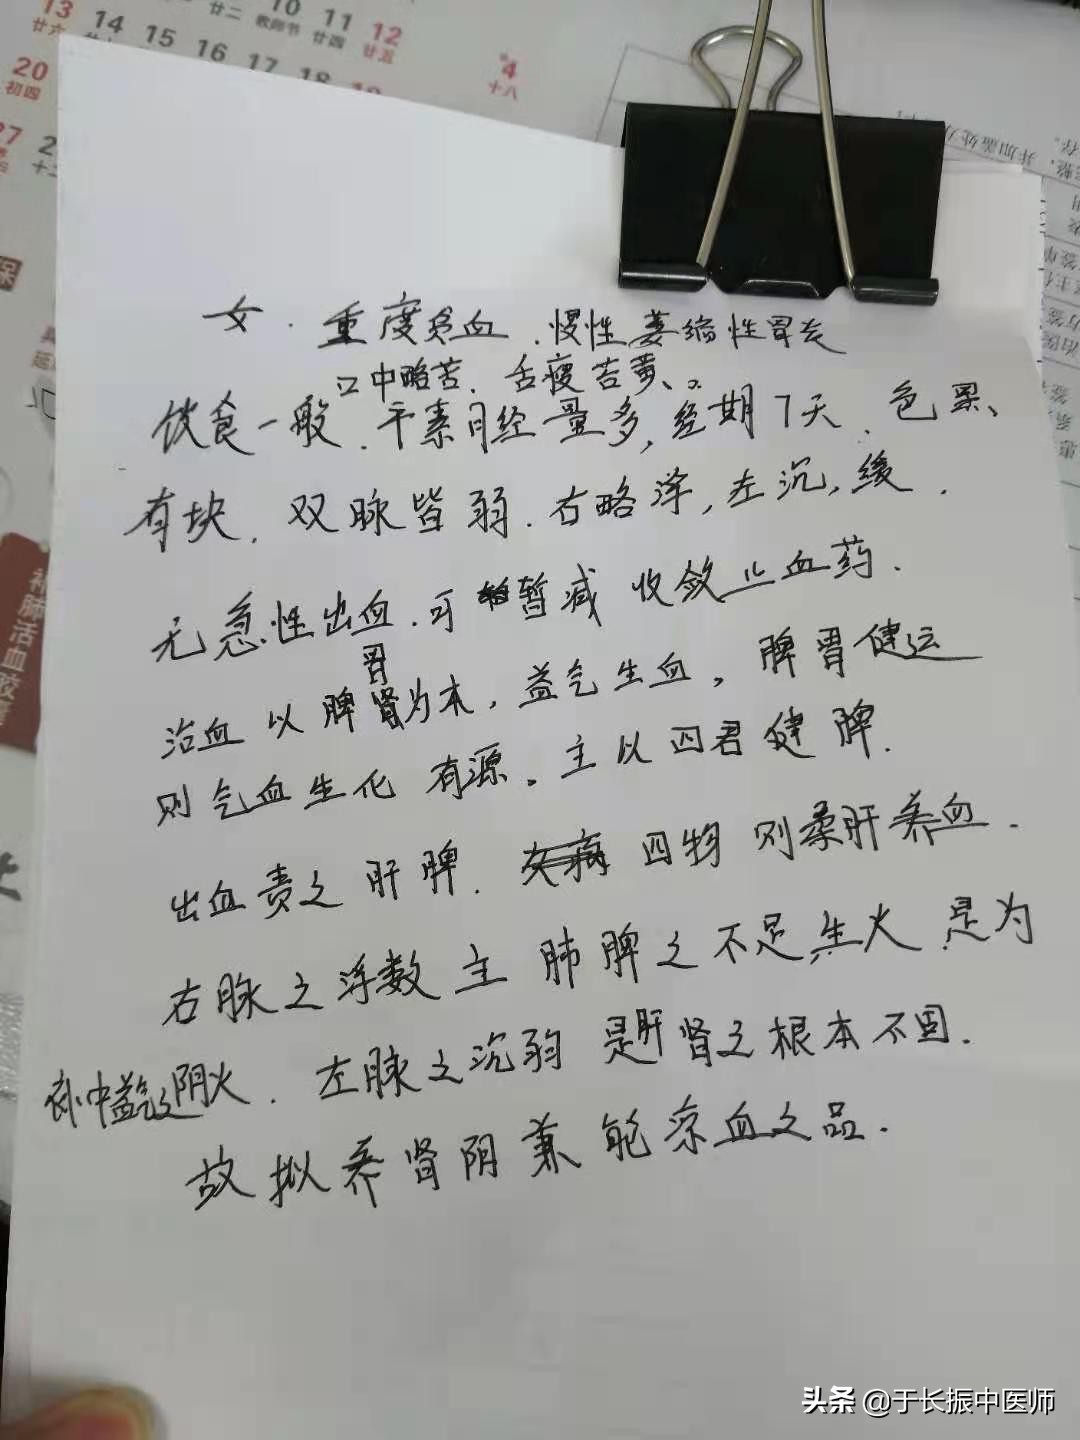 13 14 15 16 17 18
廿六
廿二 10 教师节 11 廿四 12 廿五
20 初四
4 十八
保
补肺活血胶囊
并加盖处方
女. 重度贫血. 慢性萎缩性胃炎
口中略苦. 舌瘦苔黄、。
饮食一般. 平素月经量多, 经期7天. 色黑、
有块. 双脉皆弱. 右略浮, 左沉, 缓.
无急性出血. 可暂减收敛止血药.
治血以脾胃为本, 益气生血。脾胃健运
则气血生化有源。主以四君健脾.
出血责之肝脾. 四物则柔肝养血.
右脉之浮数主肺脾之不足生火. 是为
补中益气之阴火. 左脉之沉弱是肝肾之根本不固.
故拟养肾阴兼能凉血之品.
头条 @于长振中医师